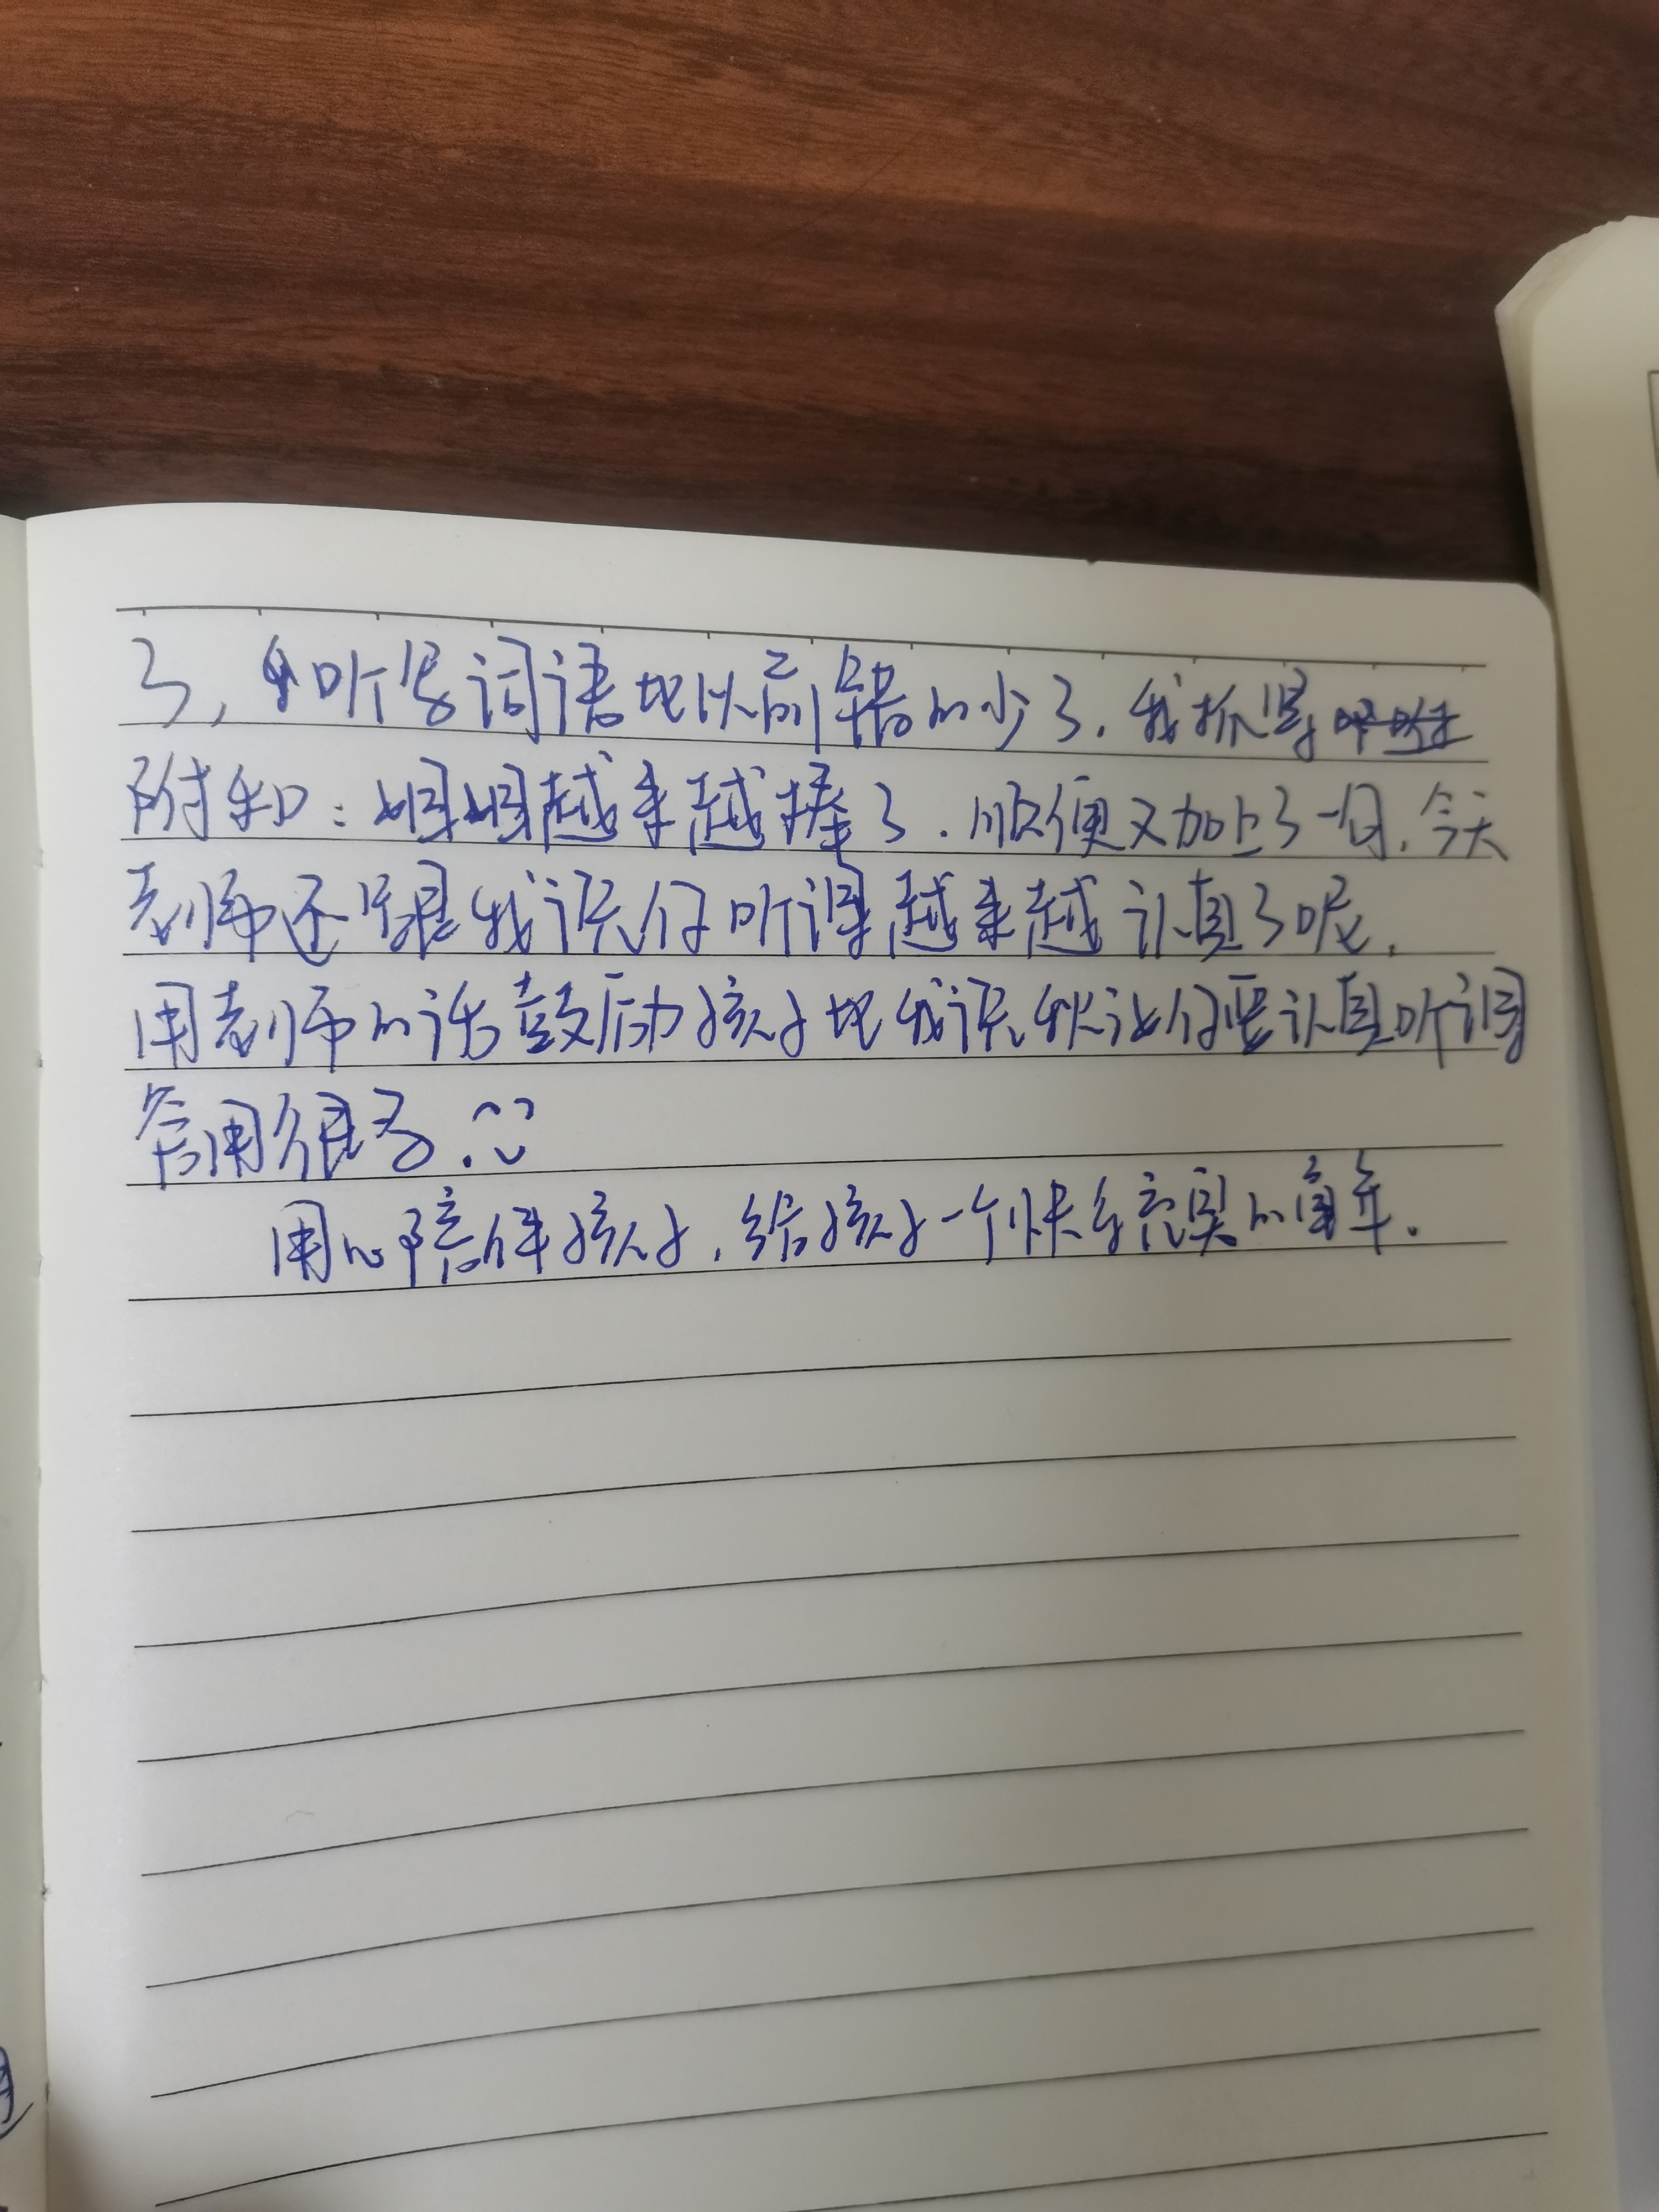 了,听写词语比以前错的少了.我抓紧
附和:妞妞越来越棒了.顺便又加上了一句.今天
老师还跟我说你听课越来越认真了呢.
用老师的话鼓励孩子比我说教让你要认真听课
管用很多.
用心陪伴孩子,给孩子一个快乐充实的童年.